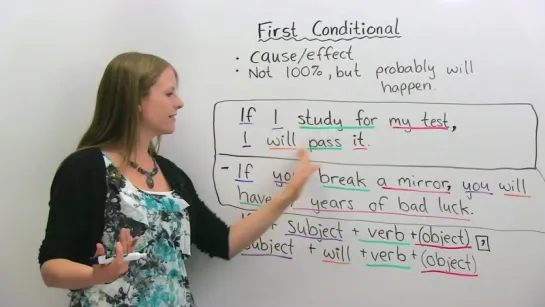 First Conditional
• Cause/effect
• Not 100%, but probably will
happen.
If I study for my test,
I will pass it.
- If you break a mirror, you will
have years of bad luck.
If + subject + verb + (object) ,
subject + will + verb + (object)